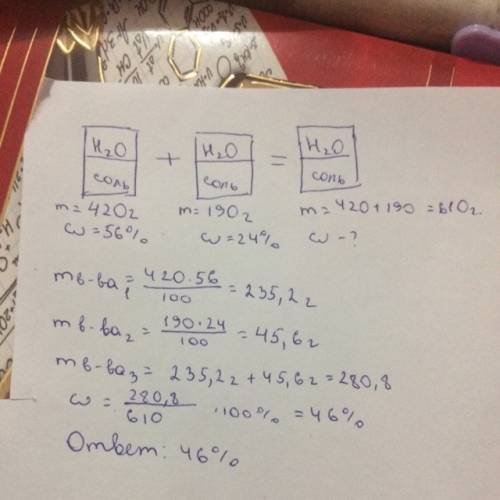 H₂O + H₂O = H₂O
соль соль соль
m=420г m=190г m=420+190=610г
ω=56% ω=24% ω-?
mв-ва₁=420·56/100=235,2г
mв-ва₂=190·24/100=45,6г
mв-ва₃=235,2г+45,6г=280,8
ω=280,8/610·100%=46%
Ответ: 46%